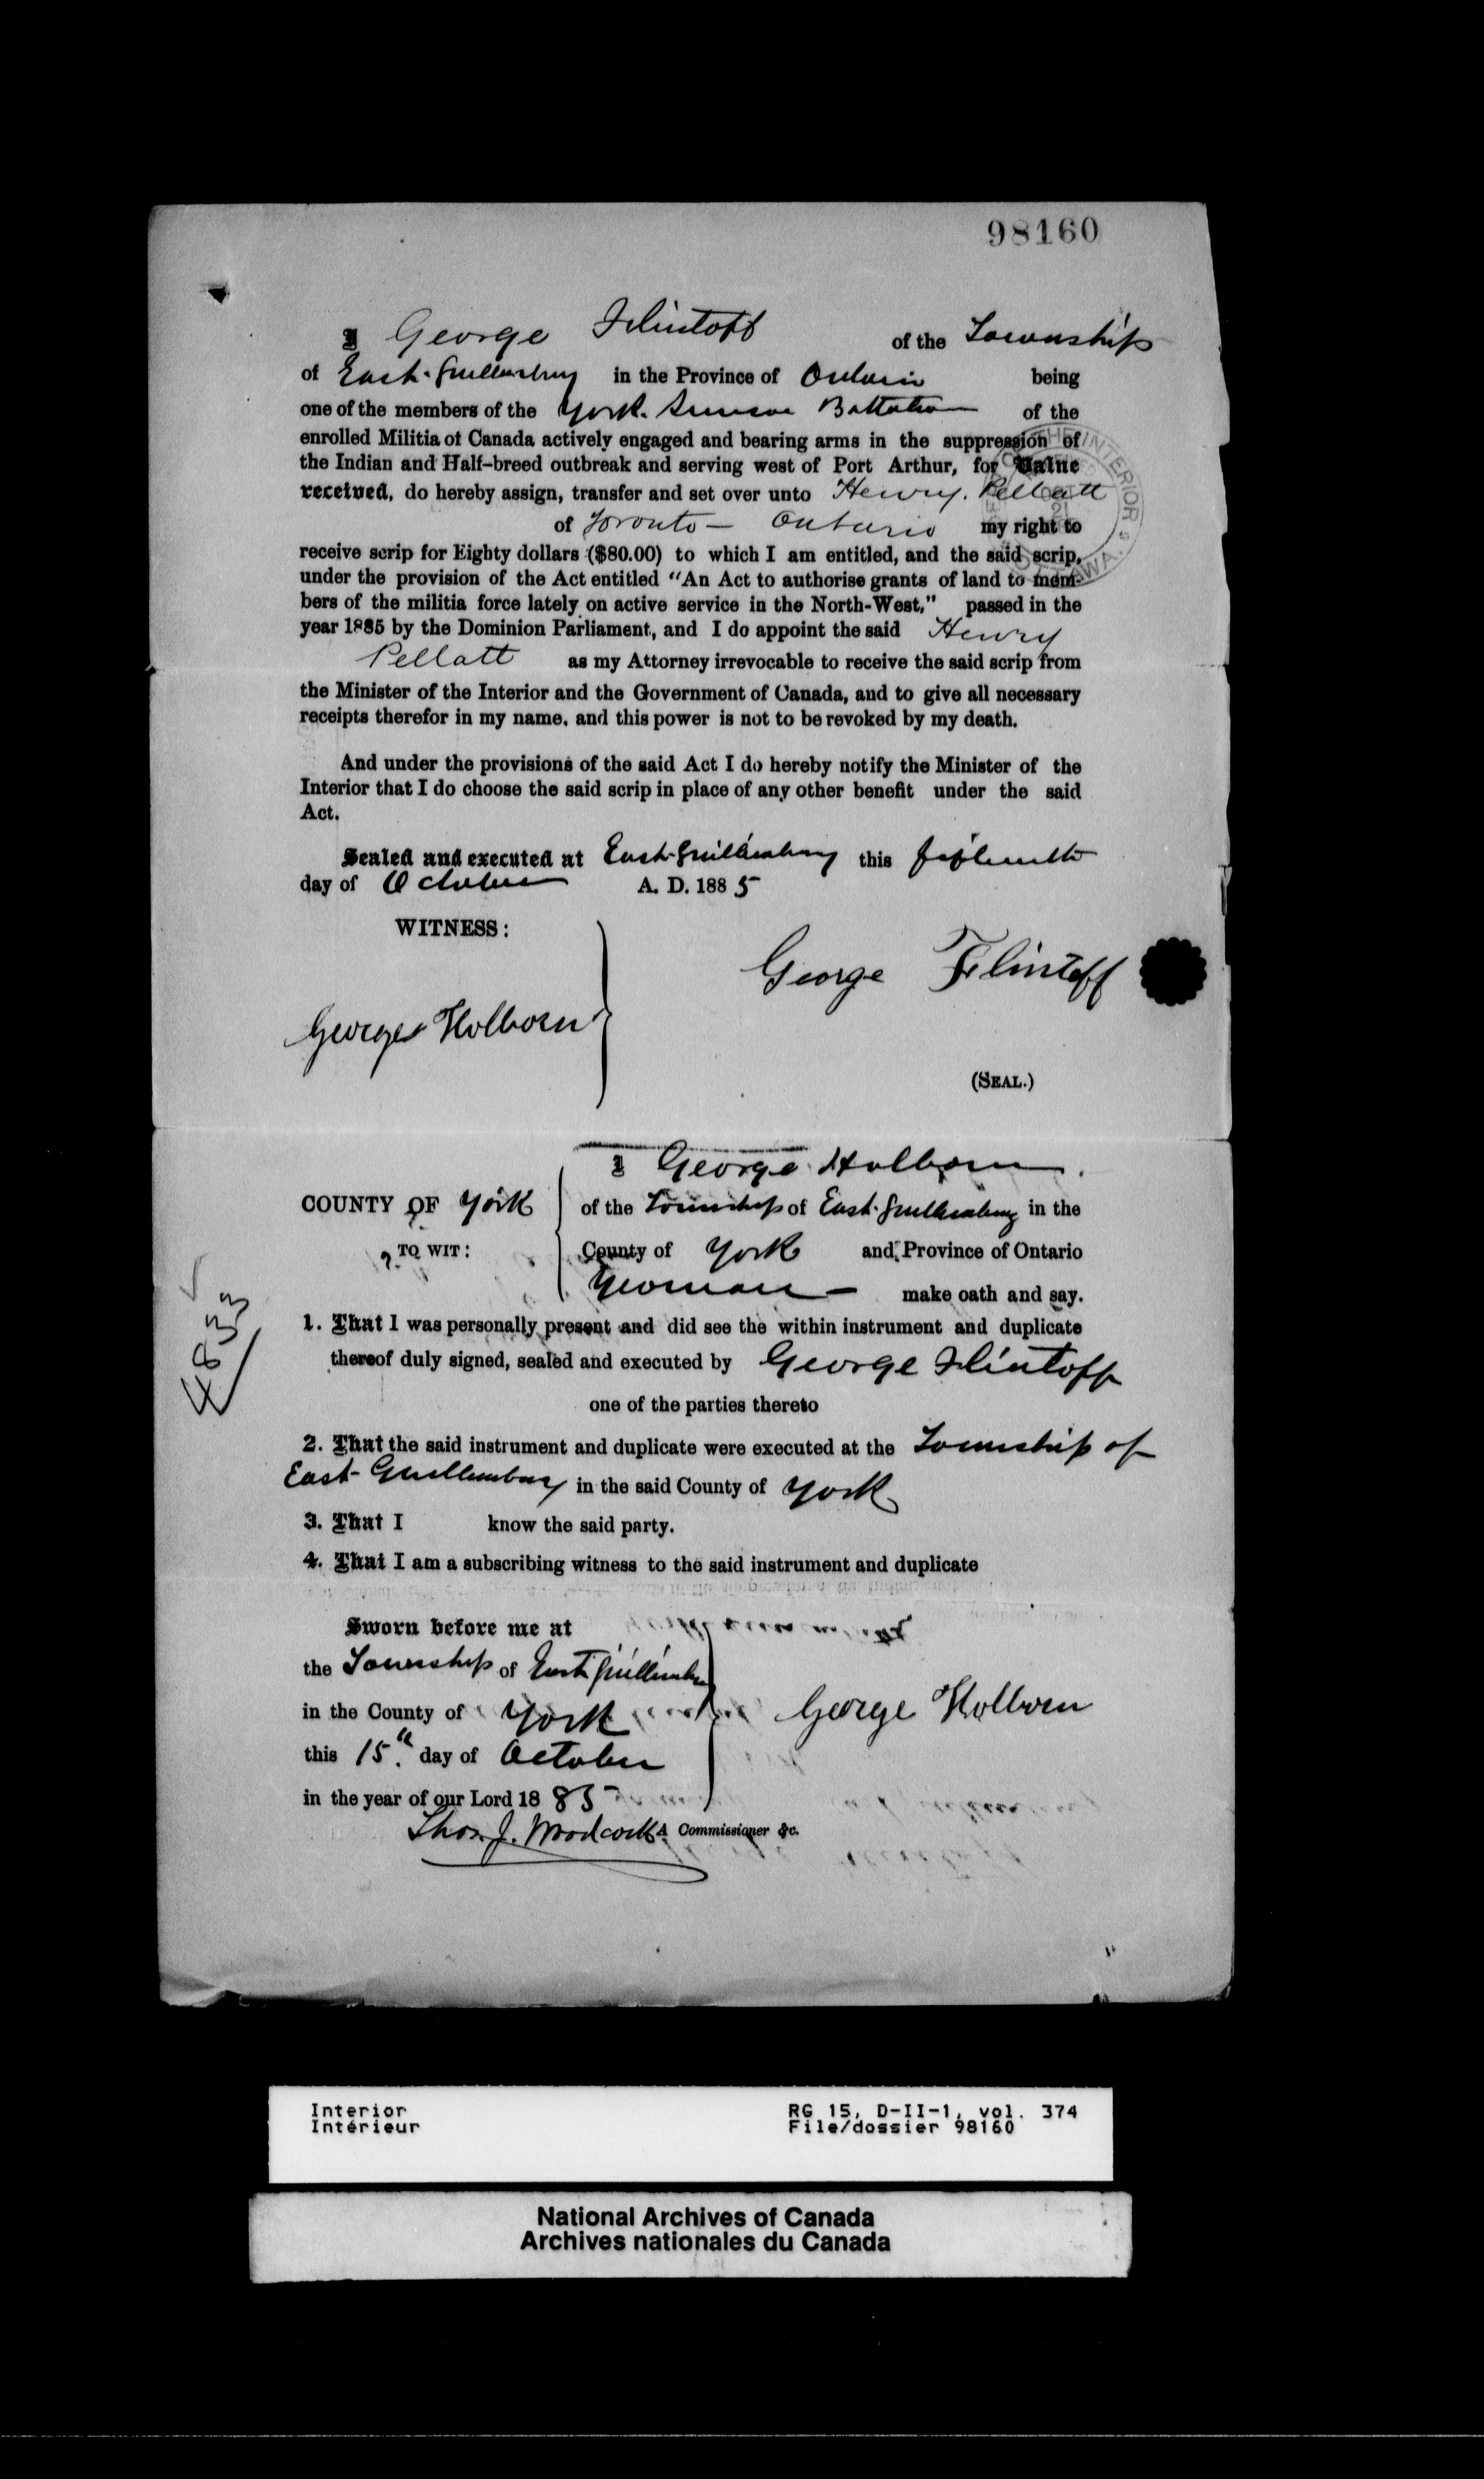 98160
I George Flintoff of the Township
of East-Gwillimbury in the Province of Ontario being
one of the members of the York. Simcoe Battalion of the
enrolled Militia of Canada actively engaged and bearing arms in the suppression of
the Indian and Half-breed outbreak and serving west of Port Arthur, for Value
received, do hereby assign, transfer and set over unto Henry. Pellatt
of Toronto — Ontario my right to
receive scrip for Eighty dollars ($80.00) to which I am entitled, and the said scrip,
under the provision of the Act entitled "An Act to authorise grants of land to mem-
bers of the militia force lately on active service in the North-West," passed in the
year 1885 by the Dominion Parliament, and I do appoint the said Henry
Pellatt as my Attorney irrevocable to receive the said scrip from
the Minister of the Interior and the Government of Canada, and to give all necessary
receipts therefor in my name, and this power is not to be revoked by my death.
And under the provisions of the said Act I do hereby notify the Minister of the
Interior that I do choose the said scrip in place of any other benefit under the said
Act.
Sealed and executed at East-Gwillimbury this fifteenth
day of October A. D. 1885
WITNESS:
George Flintoff
George Holborn
(SEAL.)
I George Holborn
COUNTY OF York
of the Township of East-Gwillimbury in the
TO WIT:
County of York and Province of Ontario
Yeoman — make oath and say.
1. That I was personally present and did see the within instrument and duplicate
thereof duly signed, sealed and executed by George Flintoff
one of the parties thereto
2. That the said instrument and duplicate were executed at the Township of
East-Gwillimbury in the said County of York
3. That I know the said party.
4. That I am a subscribing witness to the said instrument and duplicate
Sworn before me at
the Township of East Gwillimbury
in the County of York
George Holborn
this 15th day of October
in the year of our Lord 1885
Thos. J. Woodcock A Commissioner &c.
Interior RG 15, D-II-1, vol. 374
Intérieur File/dossier 98160
National Archives of Canada
Archives nationales du Canada